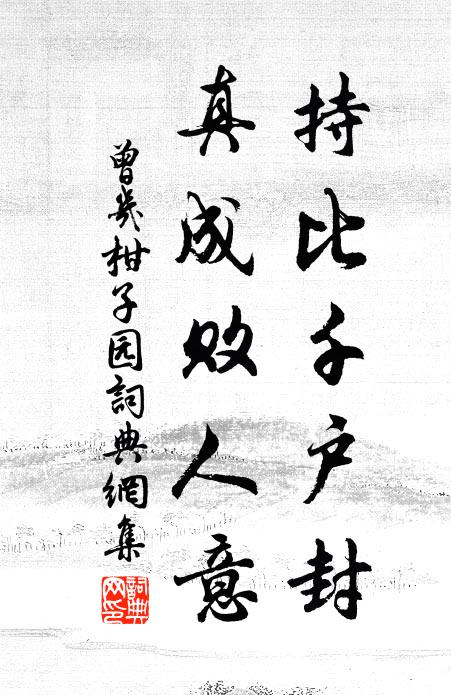 持比千户封
真成败人意
曾幾柑子园詞典網集
詞典网印